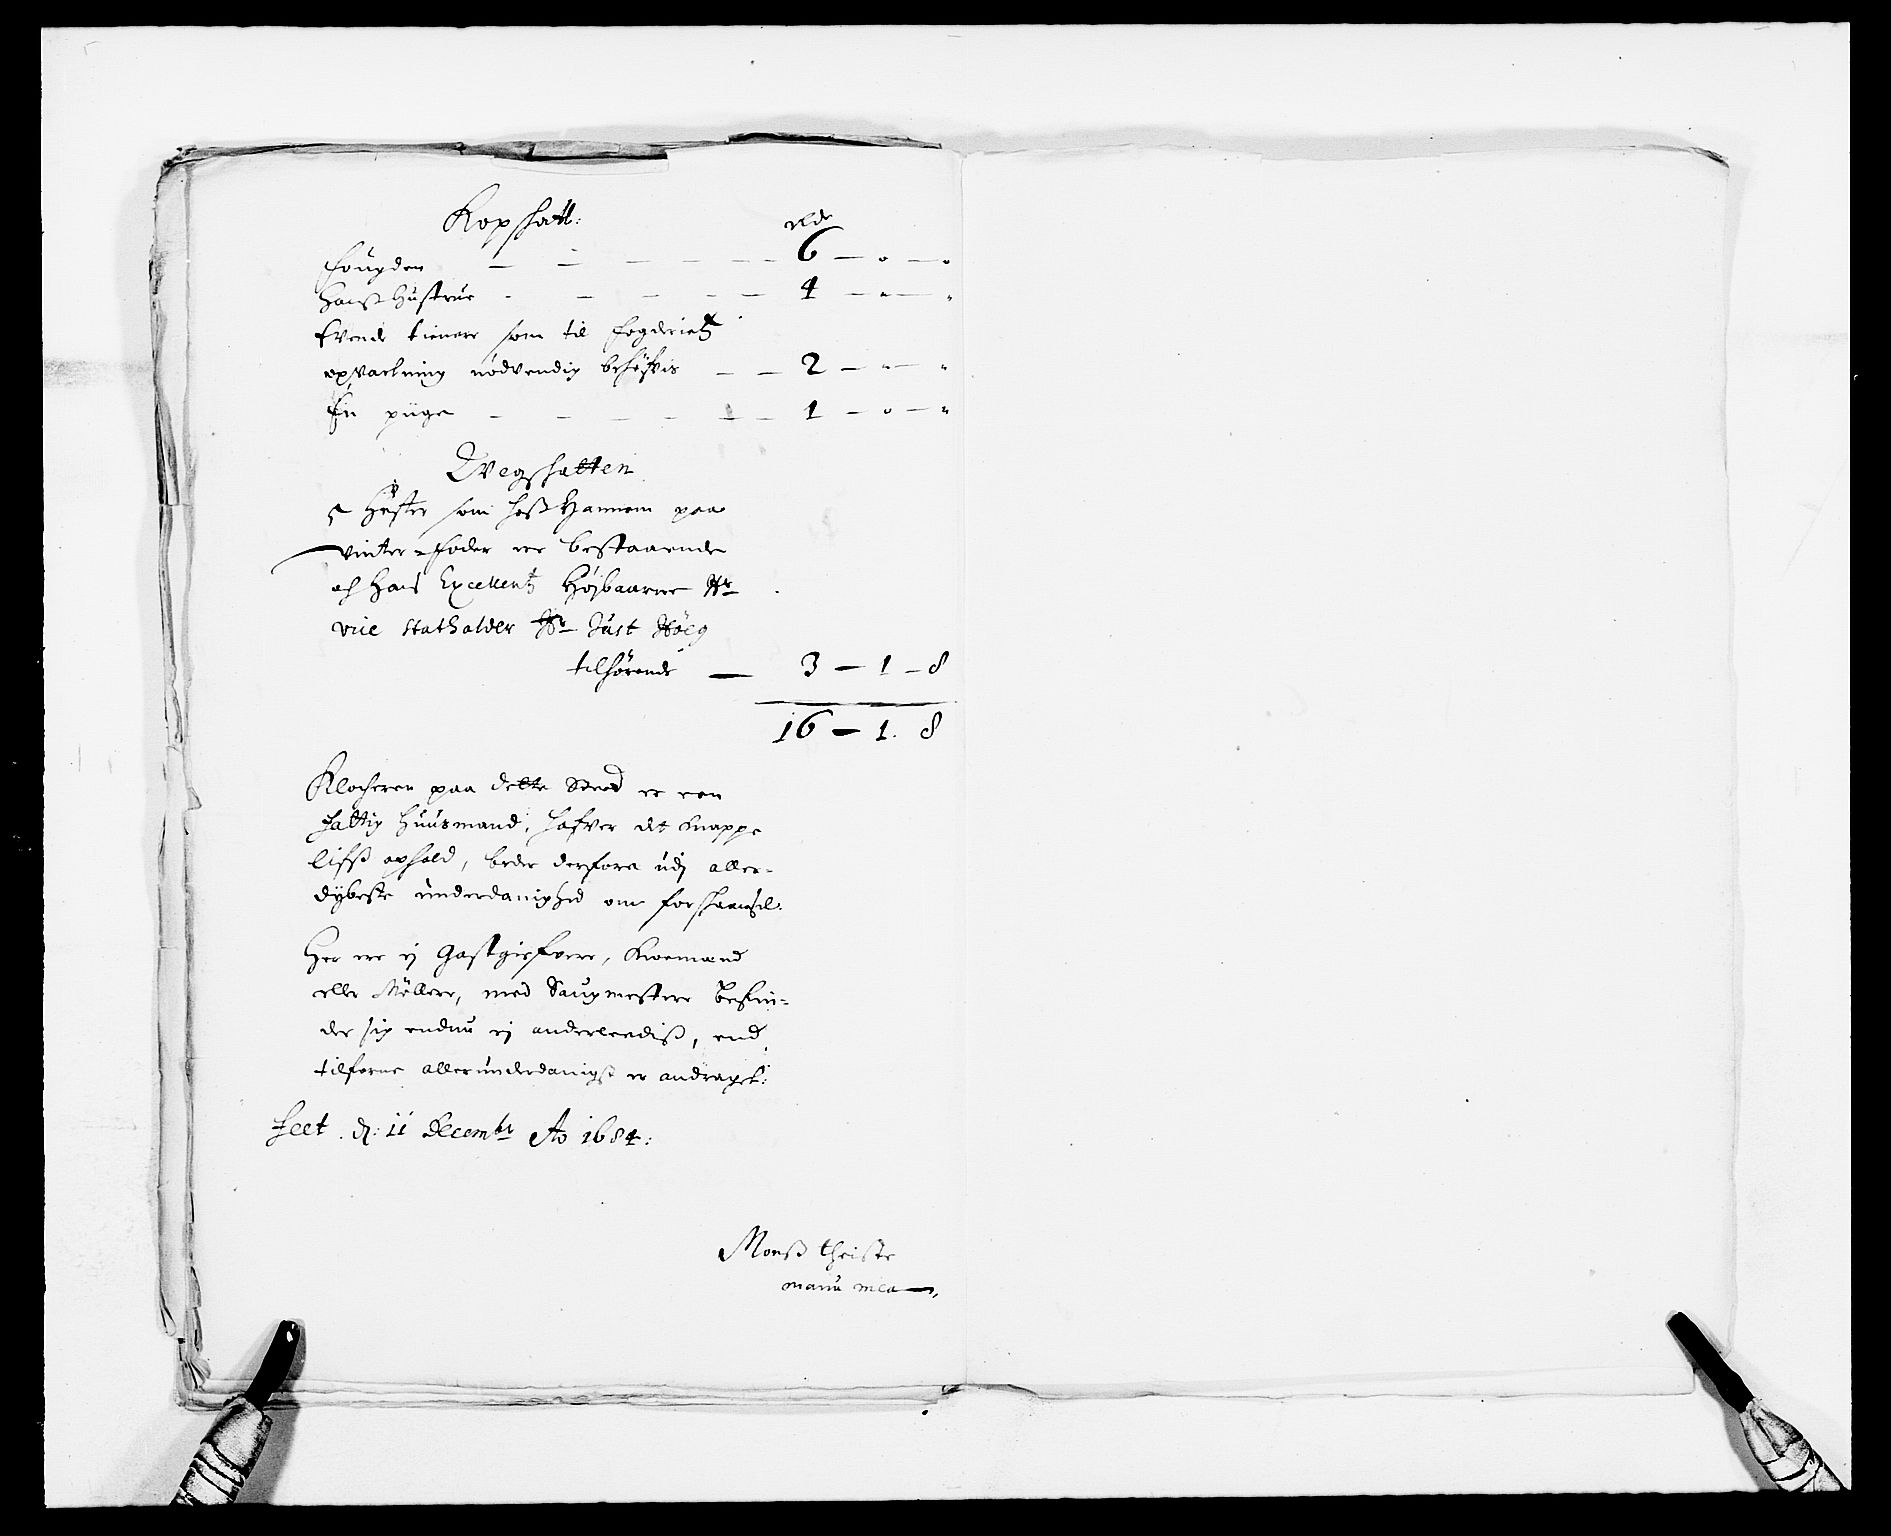 Kopskatt: Rdr
Fougden — — — — — — 6 — 0 — 0
Hanß Hustrue - — — — — 4 — " — "
Tvende tienere som til fogderietz
opvartning nødvendig behøfvis — — 2 — " — "
En piige — — — — — — 1 — 0 — "
Qvegskatten
5 Hester som hoß Hannem paa
vinter-foder ere bestaaende
och Hans Excellentz Højbaarne Hr
vice Statholder Hr Just Høeg
tilhørende — 3 — 1 — 8
16 — 1. 8
Klocheren paa dette Sted er een
fattig Huusmand, hafver det knappe
lifß ophold, beder derfore udj aller-
dybeste underdanighed om forskaansel.
Her ere ej Gastgiefvere, Kroemænd
eller Møllere, med Saugmestere befin-
der sig endnu ej anderleediß, end
tilforne allerunderdanigst er andraget:
Feet. d: 11 Decembr Ao 1684:
Monß Theiste
manu mea